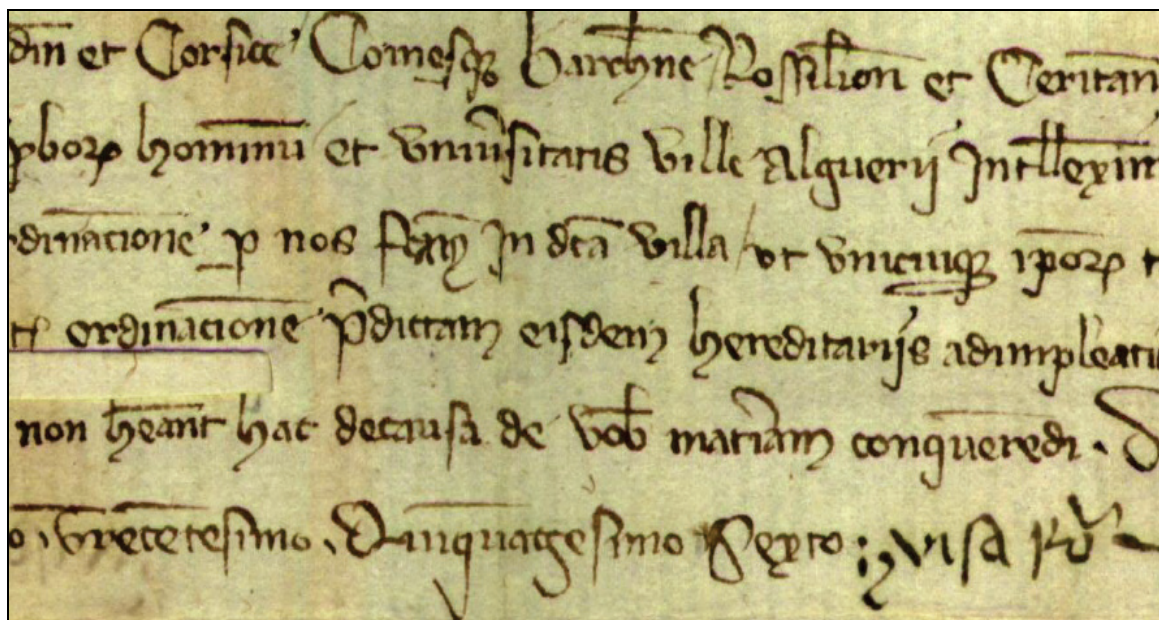 din et Corsice Comesq Barchne Rossilion et Ceritan
pborꝝ hominu et vniusitatis ville Alguerij Intllexim
rdinacione p nos fcam In dca villa vt vnicuiq ipoꝝ
ordinacione pdictam eisdem hereditarijs adimpleatis
non heant hac decausa de vob matiam conqueredi .
trecetesimo . Quinquagesimo Sexto : visa